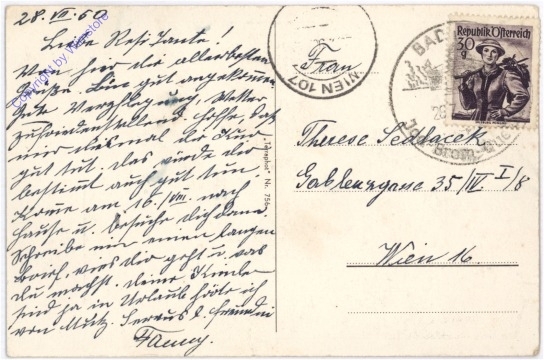 28. VII. 60
Liebe Resi Tante!
Von hier die allerbesten
Grüße. Bin gut angekommen
gute Verpflegung, Wetter
zufriedenstellend hoffe, daß
mir diesmal die Kur
gut tut. das würde dir
bestimmt auch gut tun.
Komme am 16./VIII. nach
Hause u. besuche dich dann.
Schreibe mir einen langen
Brief, wies dir geht u. was
du machst. deine Kinder
sind ja in Urlaub hörte ich
von Mutz. Servus d. Freundin
Fanny.
Copyright by Wienstore
Nr. 756
WIEN 107
BAD
28
Republik Österreich
30
g
Frau
Therese Sedlacek
Gablenzgasse 35/IV. I/8
Wien 16.